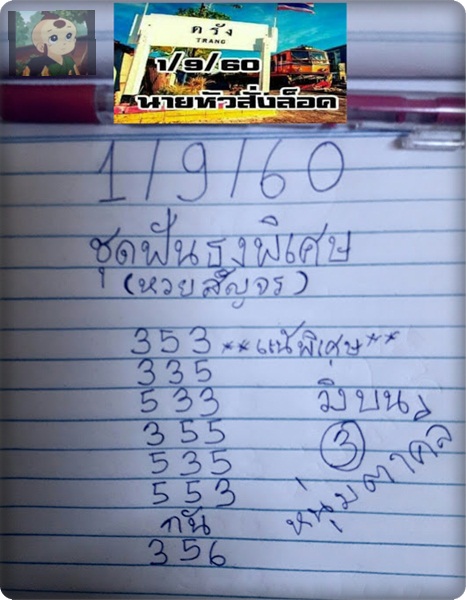 ตรัง
TRANG
1/9/60
นายหัวสั่งล็อค
1/9/60
ชุดฟันธงพิเศษ
(หวยสัญจร)
353 **แน้พิเศษ**
335
533 วิ่งบน
355 3
535
553 หนุ่มตาคลี
กัน
356